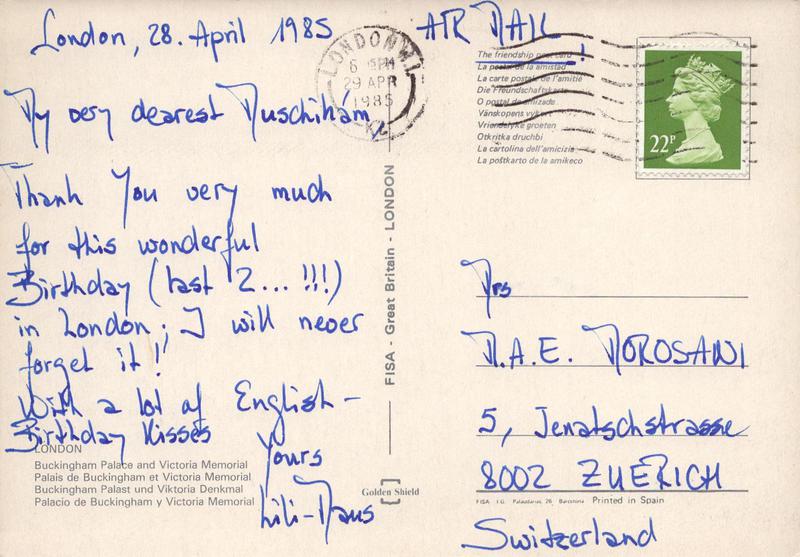 London, 28. April 1985
My very dearest Muschiham
Thank You very much
for this wonderful
Birthday (last 2... !!!)
in London; I will never
forget it!
With a lot of English-
Birthday Kisses
Yours
Lili-Maus
LONDON
Buckingham Palace and Victoria Memorial
Palais de Buckingham et Victoria Memorial
Buckingham Palast und Viktoria Denkmal
Palacio de Buckingham y Victoria Memorial
FISA - Great Britain - LONDON
Golden Shield
LONDON W1
6 15PM
29 APR
1985
AIR MAIL!
The friendship post card
La posta de la amistad
La carte postale de l'amitié
Die Freundschaftskarte
O postal da amizade
Vänskopens vykort
Vriendelyke groeten
Otkritka druchbi
La cartolina dell'amicizia
La poŝtkarto de la amikeco
22P
Mrs
M.A.E. MOROSANI
5, Jenatschstrasse
8002 ZUERICH
FISA I.G. Palaudarias, 26 Barcelona Printed in Spain
Switzerland